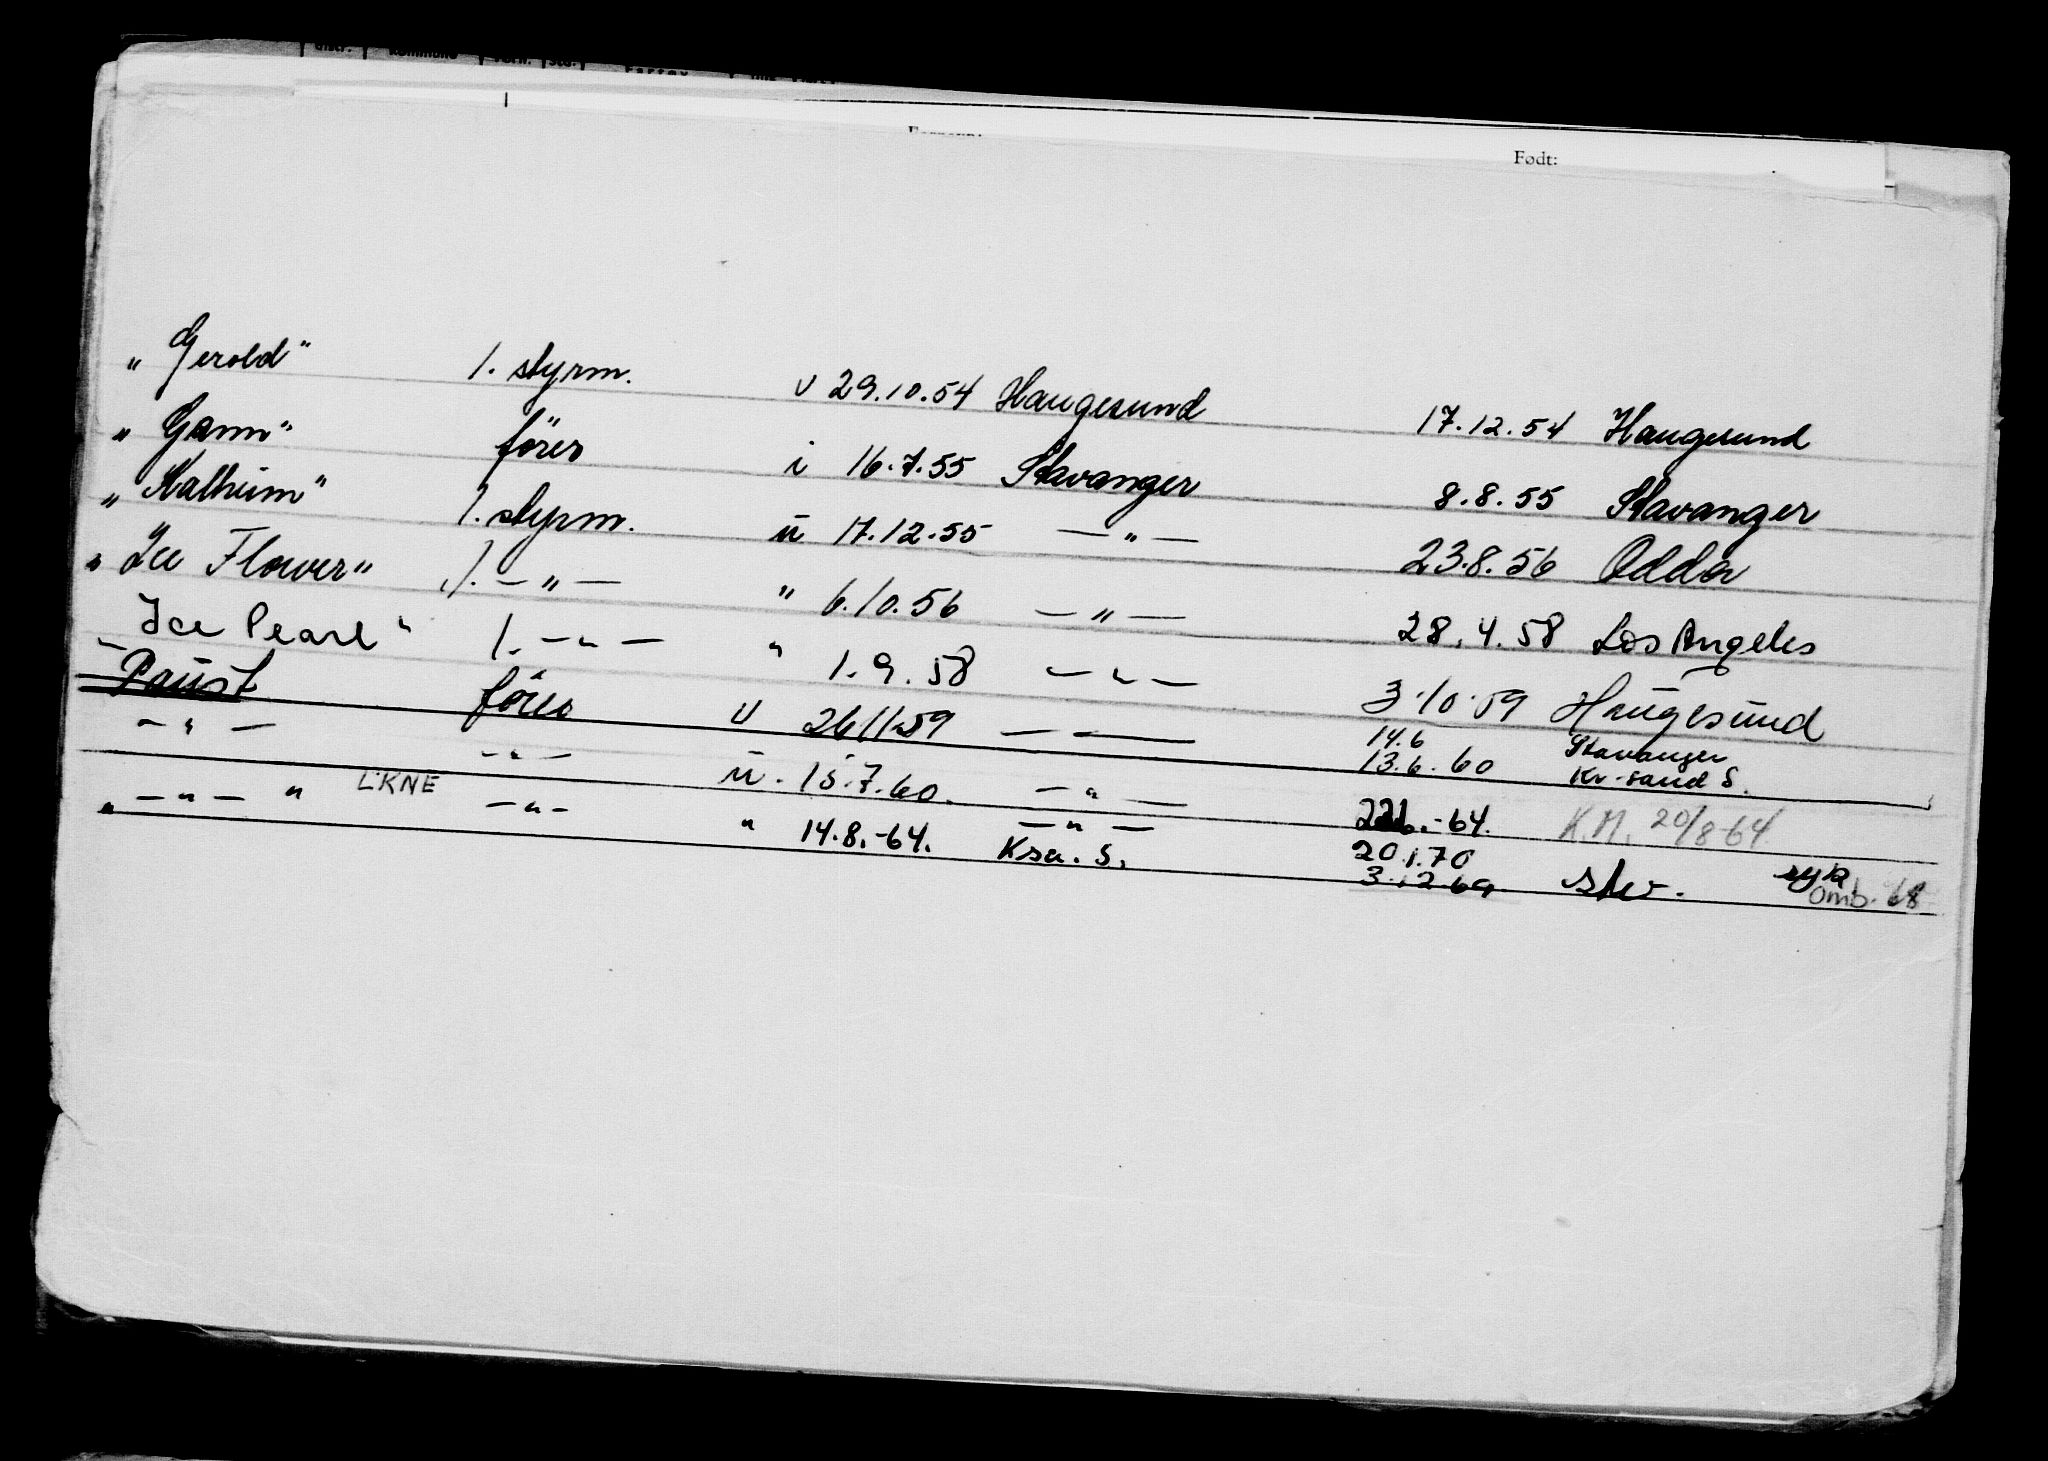 Født:
„Gerold" 1. styrm. v 29.10.54 Haugesund 17.12.54 Haugesund
„Gann" förer i 16.7.55 Stavanger 8.8.55 Stavanger
„Malheim" 1. styrm. u 17.12.55 — " — 23.8.56 Odda
„Ice Flower" 1. — " — " 6.10.56 — " — 28.4.58 Los Angeles
"Ice Pearl" 1. — " — " 1.9.58 — " — 3.10.59 Haugesund
Paust förer u 26.11.59 — — 14.6 Stavanger
— " — — " — u. 15.7.60. — " — 13.6.60 Kr-sand S.
" — " — " LKNE — " — " 14.8.-64. — " — -64. K.M. 20/8-64
Ksa. S. 20.1.70
3.12 69 Stv. omb. 68